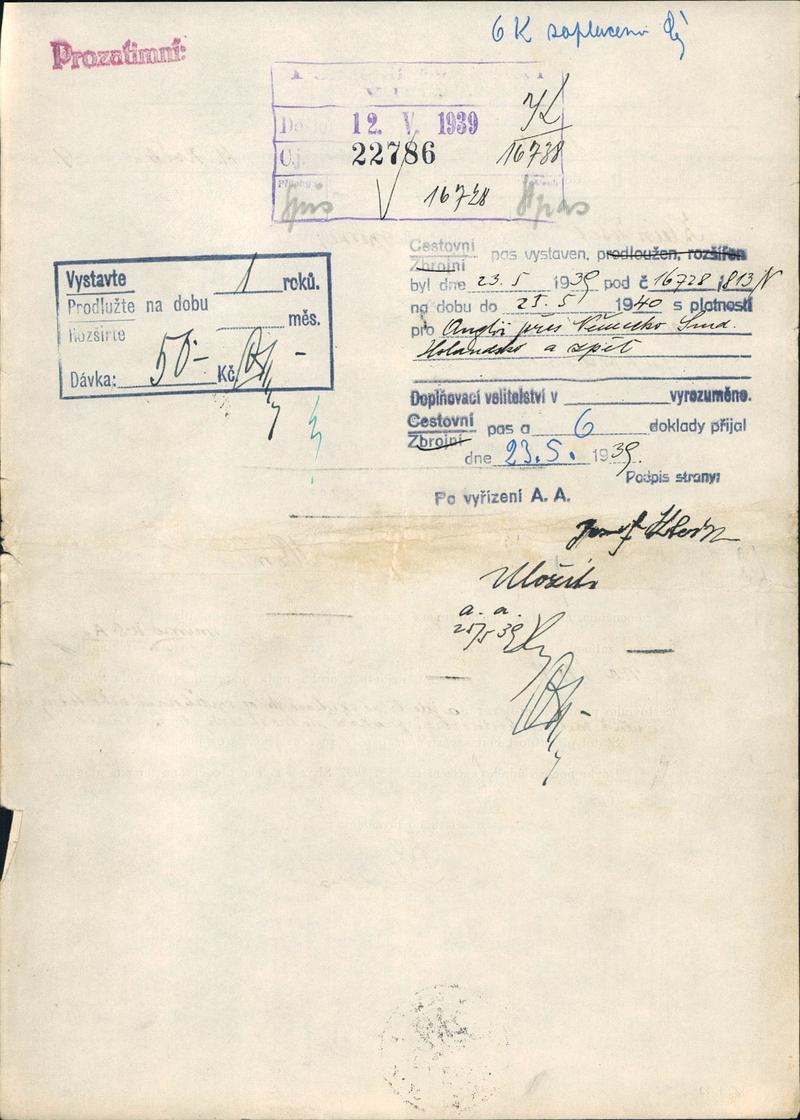 6 K zaplaceno
Prozatimní:
12. V. 1939
Č.j. 22786
16738
16728
Vystavte 1 roků.
Prodlužte na dobu
Rozšiřte měs.
Dávka: 50- Kč
Cestovní
Zbrojní pas vystaven, prodloužen, rozšířen
byl dne 23. 5 1939 pod č 16728 /813/V
na dobu do 23. 5 1940 s platností
pro Anglii přes Německo
Holandsko a zpět
Doplňovací velitelství v vyrozuměno.
Cestovní
Zbrojní pas a 6 doklady přijal
dne 23. 5. 1939.
Podpis strany:
Po vyřízení A. A.
Josef
Uložit
a. a.
25/5 39